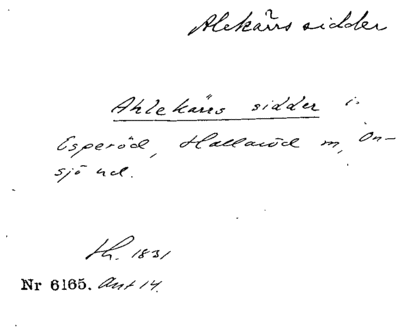 Alekärrs sidder
Ahlekärrs sidder i
Esperöd, Hallaröd m, On-
sjö hd.
th. 1831
Nr 6165. Ant 14.